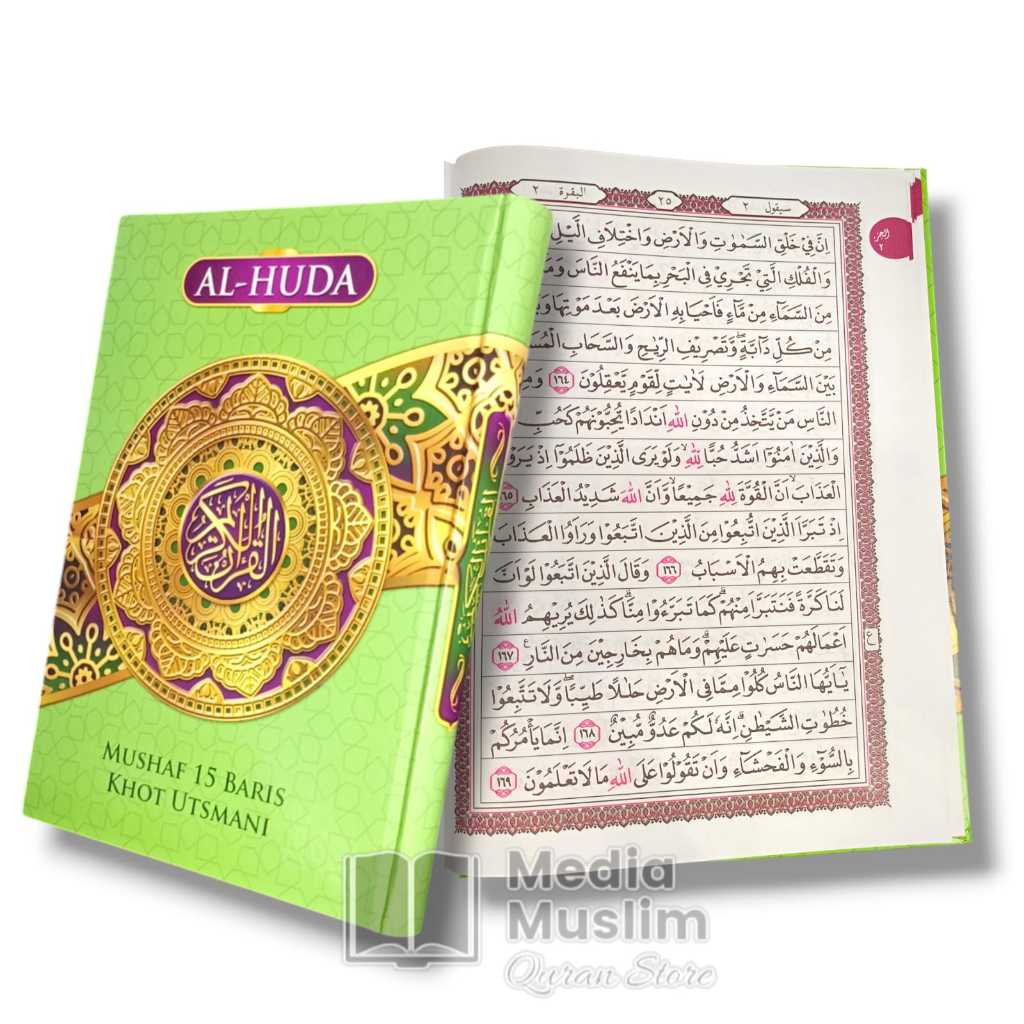 AL-HUDA
القرآن الكريم
MUSHAF 15 BARIS
KHOT UTSMANI
القرآن الكريم
سيقول ٢
٢٥
البقرة ٢
الجزء
٢
اِنَّ فِيْ خَلْقِ السَّمٰوٰتِ وَالْاَرْضِ وَاخْتِلَافِ الَّيْلِ
وَالْفُلْكِ الَّتِيْ تَجْرِيْ فِى الْبَحْرِ بِمَا يَنْفَعُ النَّاسَ
مِنَ السَّمَاۤءِ مِنْ مَّاۤءٍ فَاَحْيَا بِهِ الْاَرْضَ بَعْدَ مَوْتِهَا
مِنْ كُلِّ دَاۤبَّةٍۖ وَّتَصْرِيْفِ الرِّيٰحِ وَالسَّحَابِ
بَيْنَ السَّمَاۤءِ وَالْاَرْضِ لَاٰيٰتٍ لِّقَوْمٍ يَّعْقِلُوْنَ ١٦٤
النَّاسِ مَنْ يَّتَّخِذُ مِنْ دُوْنِ اللّٰهِ اَنْدَادًا يُّحِبُّوْنَهُمْ كَحُبِّ
وَالَّذِيْنَ اٰمَنُوْٓا اَشَدُّ حُبًّا لِّلّٰهِۙ وَلَوْ يَرَى الَّذِيْنَ ظَلَمُوْٓا اِذْ
الْعَذَابَۙ اَنَّ الْقُوَّةَ لِلّٰهِ جَمِيْعًاۙ وَّاَنَّ اللّٰهَ شَدِيْدُ الْعَذَابِ
اِذْ تَبَرَّاَ الَّذِيْنَ اتُّبِعُوْا مِنَ الَّذِيْنَ اتَّبَعُوْا وَرَاَوُا الْعَذَابَ
وَتَقَطَّعَتْ بِهِمُ الْاَسْبَابُ ١٦٦ وَقَالَ الَّذِيْنَ اتَّبَعُوْا لَوْ اَنَّ
لَنَا كَرَّةً فَنَتَبَرَّاَ مِنْهُمْ كَمَا تَبَرَّءُوْا مِنَّاۗ كَذٰلِكَ يُرِيْهِمُ اللّٰهُ
اَعْمَالَهُمْ حَسَرٰتٍ عَلَيْهِمْۗ وَمَا هُمْ بِخَارِجِيْنَ مِنَ النَّارِ ࣖ ١٦٧
يٰٓاَيُّهَا النَّاسُ كُلُوْا مِمَّا فِى الْاَرْضِ حَلٰلًا طَيِّبًاۖ وَّلَا تَتَّبِعُوْا
خُطُوٰتِ الشَّيْطٰنِۗ اِنَّهٗ لَكُمْ عَدُوٌّ مُّبِيْنٌ ١٦٨ اِنَّمَا يَأْمُرُكُمْ
بِالسُّوْۤءِ وَالْفَحْشَاۤءِ وَاَنْ تَقُوْلُوْا عَلَى اللّٰهِ مَا لَا تَعْلَمُوْنَ ١٦٩
ع
Media
Muslim
Quran Store